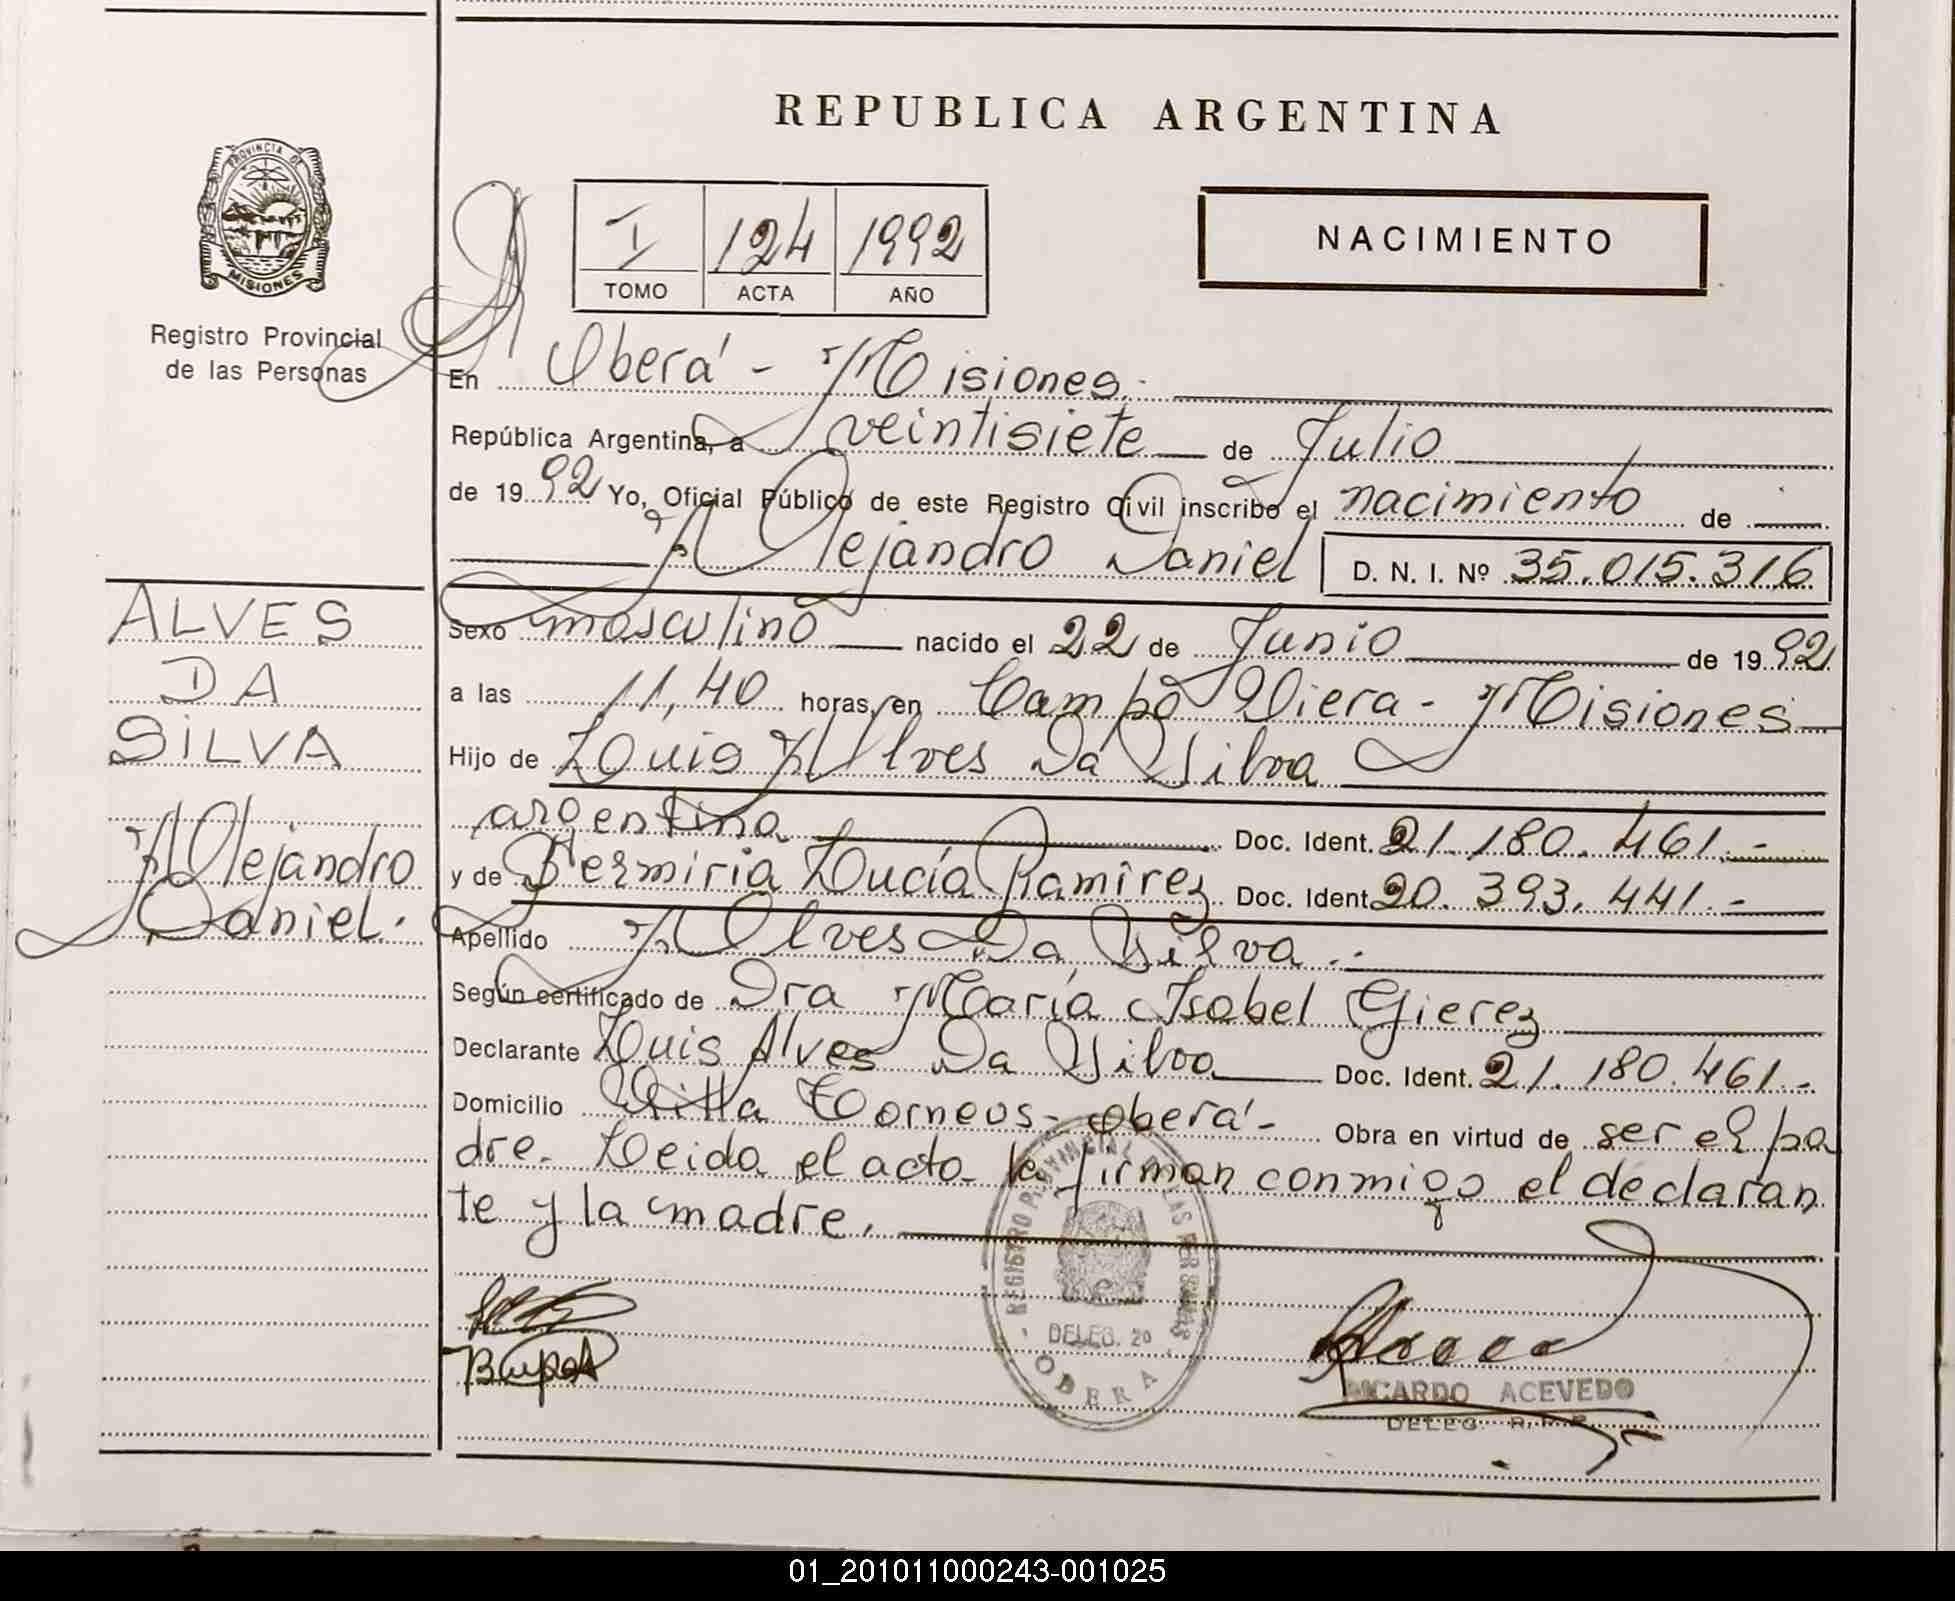 REPUBLICA ARGENTINA
PROVINCIA DE
MISIONES
Registro Provincial
de las Personas
I 124 1992
TOMO ACTA AÑO
NACIMIENTO
En Oberá - Misiones.
República Argentina, a veintisiete de Julio
de 1992 Yo, Oficial Público de este Registro Civil inscribo el nacimiento de
Alejandro Daniel D. N. I. Nº 35.015.316
ALVES
DA
SILVA
Alejandro
Daniel.
Sexo masculino nacido el 22 de Junio de 1992.
a las 11,40 horas, en Campo Viera - Misiones
Hijo de Luis Alves Da Silva
argentino Doc. Ident. 21.180.461.-
y de Fermiria Lucía Ramirez Doc. Ident. 20.393.441.-
Apellido Alves Da Silva.-
Según certificado de Dra María Isabel Gierez
Declarante Luis Alves Da Silva Doc. Ident. 21.180.461.-
Domicilio Villa Torneus - Oberá - Obra en virtud de ser el pa
dre. Leida el acta la firman conmigo el declaran
te y la madre.
REGISTRO PROVINCIAL DE LAS PERSONAS
DELEG. 2º
OBERA
RICARDO ACEVEDO
DELEG. R.P.P.
01_201011000243-001025